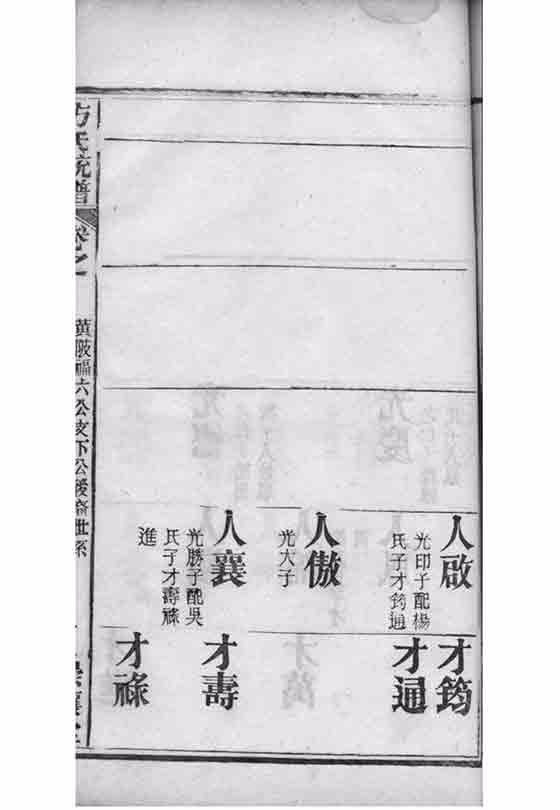 人啟
光印子配楊
氏子才筠通
人傲
光大子
人襄
光勝子配吳
氏子才壽祿
進
才筠
才通
才壽
才祿
方氏統譜
卷之
黃陂福六公支下公發裔世系